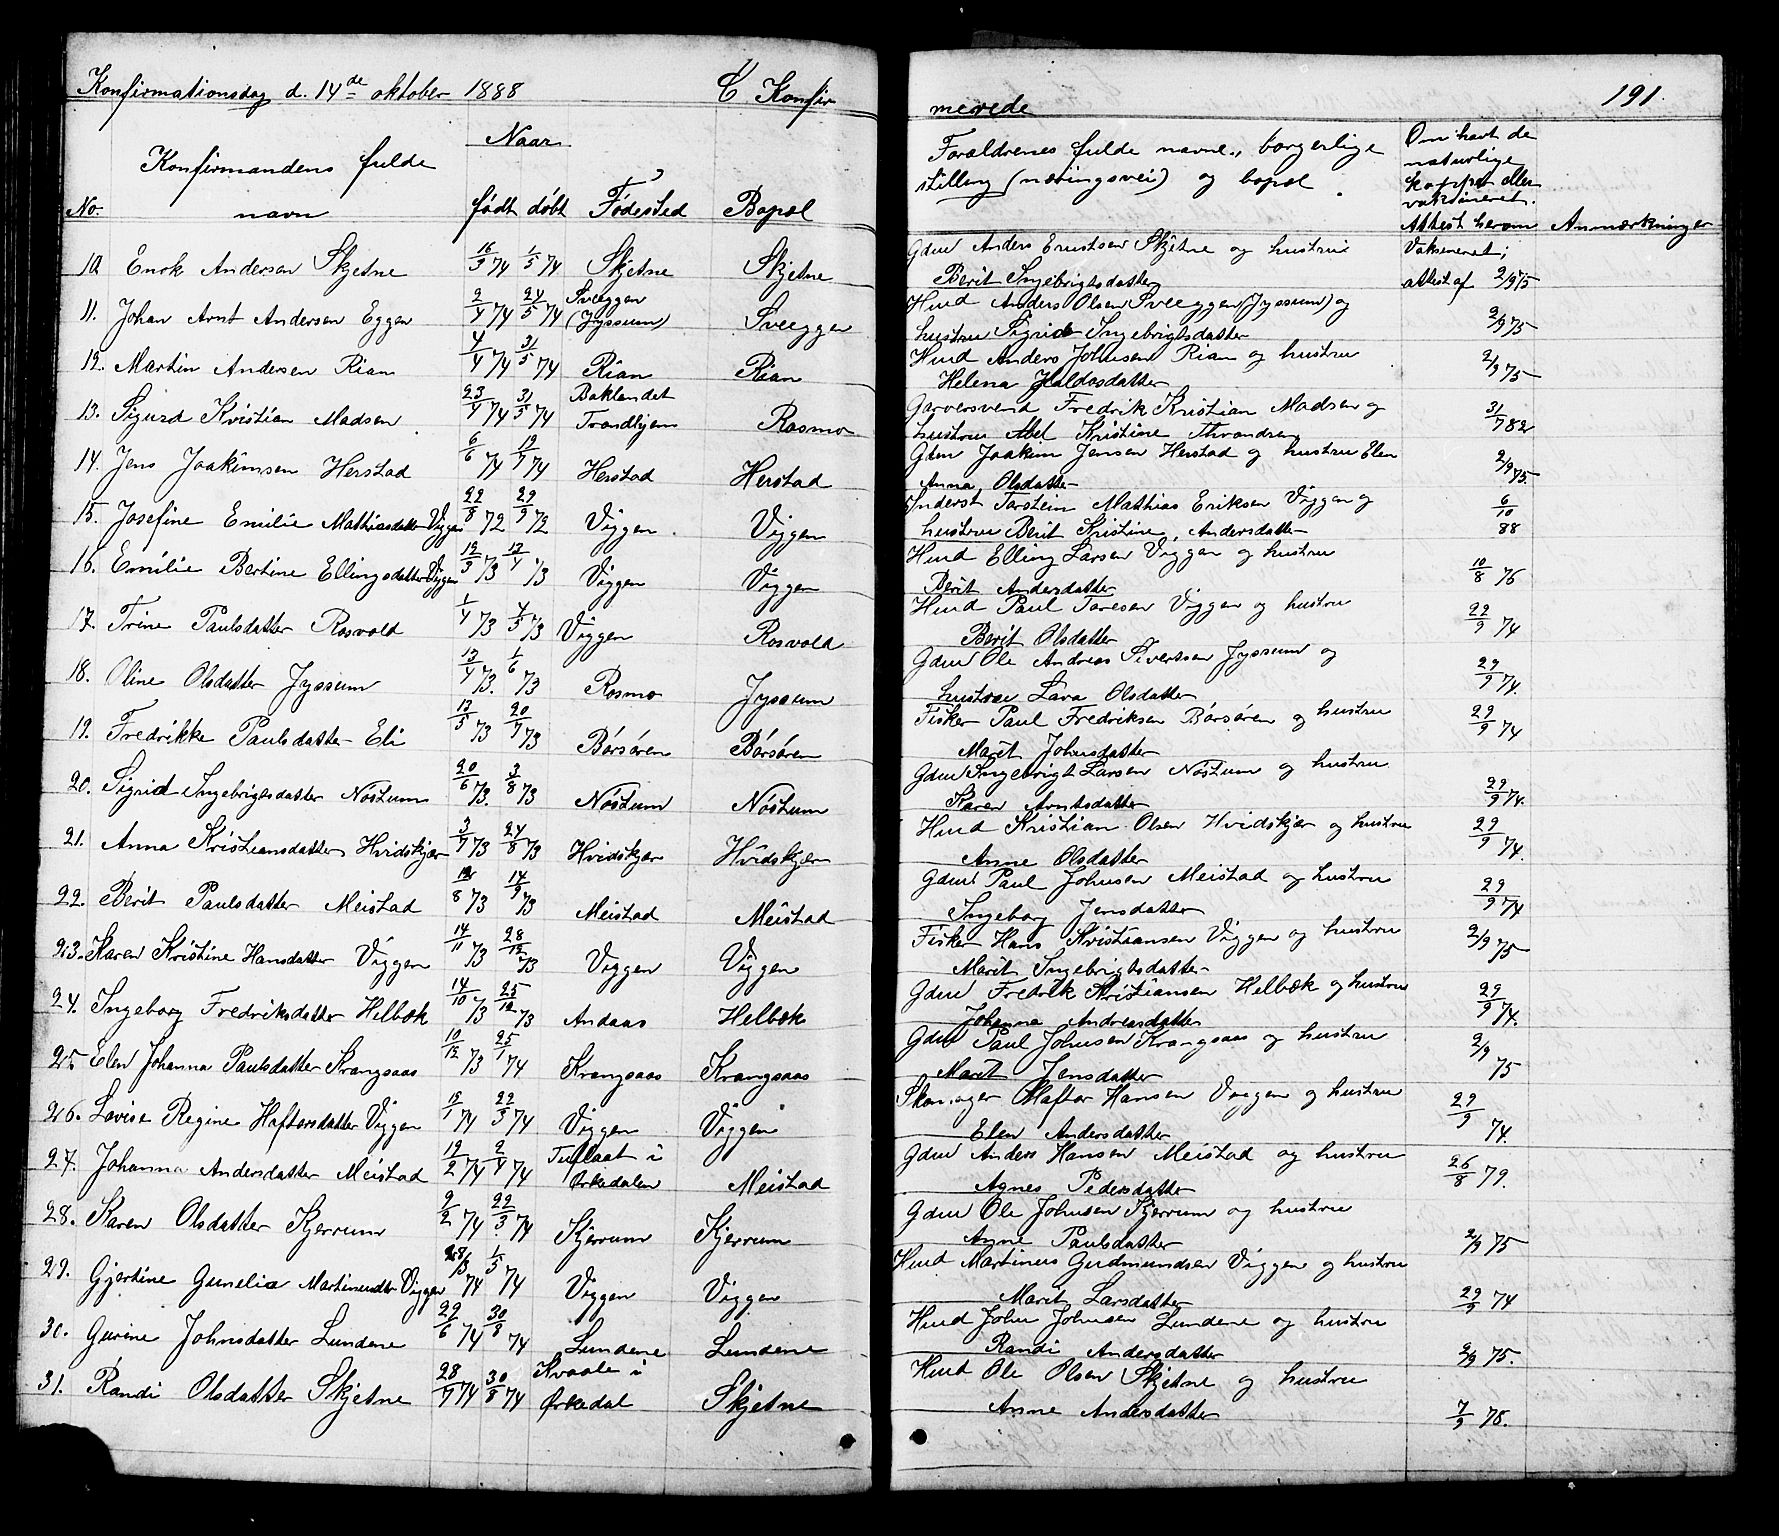 Konfirmationsdag d. 14de oktober 1888 C Konfir
merede 191.
No. Konfirmandens fulde navn Naar født døbt Fødested Bopæl
Forældrenes fulde navne, borgerlige stilling (næringsvei) og bopæl
Om havt de naturlige kopper eller vaksineret. Attest herom Anmærkninger
10 Enok Andersen Skjetne 16/3 74 1/5 74 Skjetne Skjetne
Gdm Anders Skjetne og hustru Vaksineret;
Berit Ingebrigtsdatter attest af 2/9 75
11. Johan Arnt Andersen Eggen 2/4 74 24/5 74 Sveeggen (Jyssum) Sveeggen
Husd Anders Olsen Sveeggen (Jyssum) og
hustru Sigrid Ingebrigtsdatter 2/9 75
12. Martin Andersen Rian 4/4 74 31/5 74 Rian Rian
Husd Anders Johnsen Rian og hustru
Helena Haldosdatter 2/9 75
13. Sigurd Kristian Madsen 23/4 74 31/5 74 Baklandet Trondhjem Rosmo
Garversvend Fredrik Kristian Madsen og
hustru Abel Kristine Throndsen 31/7 82
14. Jens Joakimsen Herstad 6/6 74 19/7 74 Herstad Herstad
Gdm Joakim Jensen Herstad og hustru Elen
Anna Olsdatter 2/9 75.
15. Josefine Emilie Mathiasdatter Viggen 22/8 72 29/9 72 Viggen Viggen
Inderst Torstein Mathias Eriksen Viggen og
hustru Berit Kristine Andersdatter 6/10 88
16. Emilie Bertine Ellingsdatter Viggen 12/3 73 12/4 73 Viggen Viggen
Husd Elling Larsen Viggen og hustru
Berit Andersdatter 10/8 76
17. Trine Paulsdatter Rosvold 1/4 73 4/5 73 Viggen Rosvold
Husd Paul Toresen Viggen og hustru
Berit Olsdatter 29/9 74
18. Oline Olsdatter Jyssum 13/4 73. 1/6 73 Rosmo Jyssum
Gdm Ole Andreas Sivertsen Jyssum og
hustru Lava Olsdatter 29/9 74.
19. Fredrikke Paulsdatter Eli 13/5 73 20/7 73 Børsøren Børsøren
Fisker Paul Fredriksen Børsøren og hustru
Marit Johnsdatter 29/9 74
20. Sigrid Ingebrigtsdatter Nøstum 20/6 73. 3/8 73 Nøstum Nøstum
Gdm Ingebrigt Larsen Nøstum og hustru
Karen Arntsdatter 29/9 74.
21. Anna Kristiansdatter Hvidskjær 3/7 73 24/8 73 Hvidskjær Hvidskjær
Husd Kristian Olsen Hvidskjær og hustru
Anne Olsdatter 29/9 74.
22. Berit Paulsdatter Meistad 8 73 14/9 73 Meistad Meistad
Gdm Paul Johnsen Meistad og hustru
Ingeborg Jensdatter 29/9 74
23. Karen Kristine Hansdatter Viggen 14/11 73 28/12 73 Viggen Viggen
Fisker Hans Kristiansen Viggen og hustru
Marit Ingebrigtsdatter 2/9 75
24. Ingeborg Fredriksdatter Helbæk 14/10 73 25/12 73 Andaas Helbæk
Gdm Fredrik Kristiansen Helbæk og hustru
Johanna Andreasdatter 29/9 74.
25 Elen Johanna Paulsdatter Krangsaas 10/12 73 25/1 74 Krangsaas Krangsaas
Gdm Paul Johnsen Krangsaas og hustru
Marit Jensdatter 2/9 75
26. Lovise Regine Haftorsdatter Viggen 12/1 74 22/3 74 Viggen Viggen
Skomager Haftor Hansen Viggen og hustru
Elen Andersdatter 29/9 74.
27. Johanna Andersdatter Meistad 12/2 74 2/4 74 i Orkedalen Meistad
Gdm Anders Hansen Meistad og hustru
Agnes Pedersdatter 26/8 79.
28. Karen Olsdatter Kjerrum 9/2 74 22/3 74 Kjerrum Kjerrum
Gdm Ole Johnsen Kjerrum og hustru
Anne Paulsdatter 2/9 75
29. Gjertine Gunelia Martinusdtr Viggen 28/3 74 1/5 74 Viggen Viggen
Husd Martinus Gudmundsen Viggen og hustru
Marit Larsdatter 29/9 74
30. Gurine Johnsdatter Lundene 29/6 74 30/8 74 Lundene Lundene
Husd John Johnsen Lundene og hustru
Randi Andersdatter 2/9 75.
31. Randi Olsdatter Skjetne 28/7 74 30/8 74 Kvaale i Orkedal Skjetne
Husd Ole Olsen Skjetne og hustru
Anne Andersdatter 7/9 78.